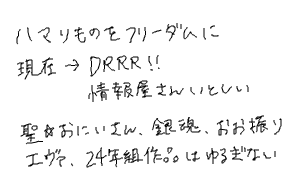 ハマりものをフリーダムに
現在→DRRR!!
情報屋さんいとしい
聖☆おにいさん、銀魂、おお振り
エヴァ、24年組作品。はゆるぎない